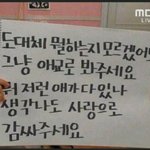 MBC
도대체 뭘하는지 모르겠어도
그냥 애교로 봐주세요
뭐 저런 애가 다있나
생각나도 사랑으로
감싸주세요